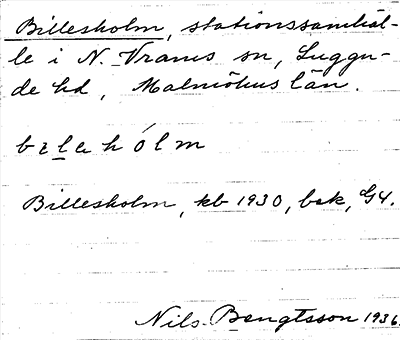 Billesholm, stationssamhäl-
le i N. Vrams sn, Luggu-
de hd, Malmöhus län.
bɪlehólm
Billesholm, kb 1930, bsk, G4.
Nils Bengtsson 1936.